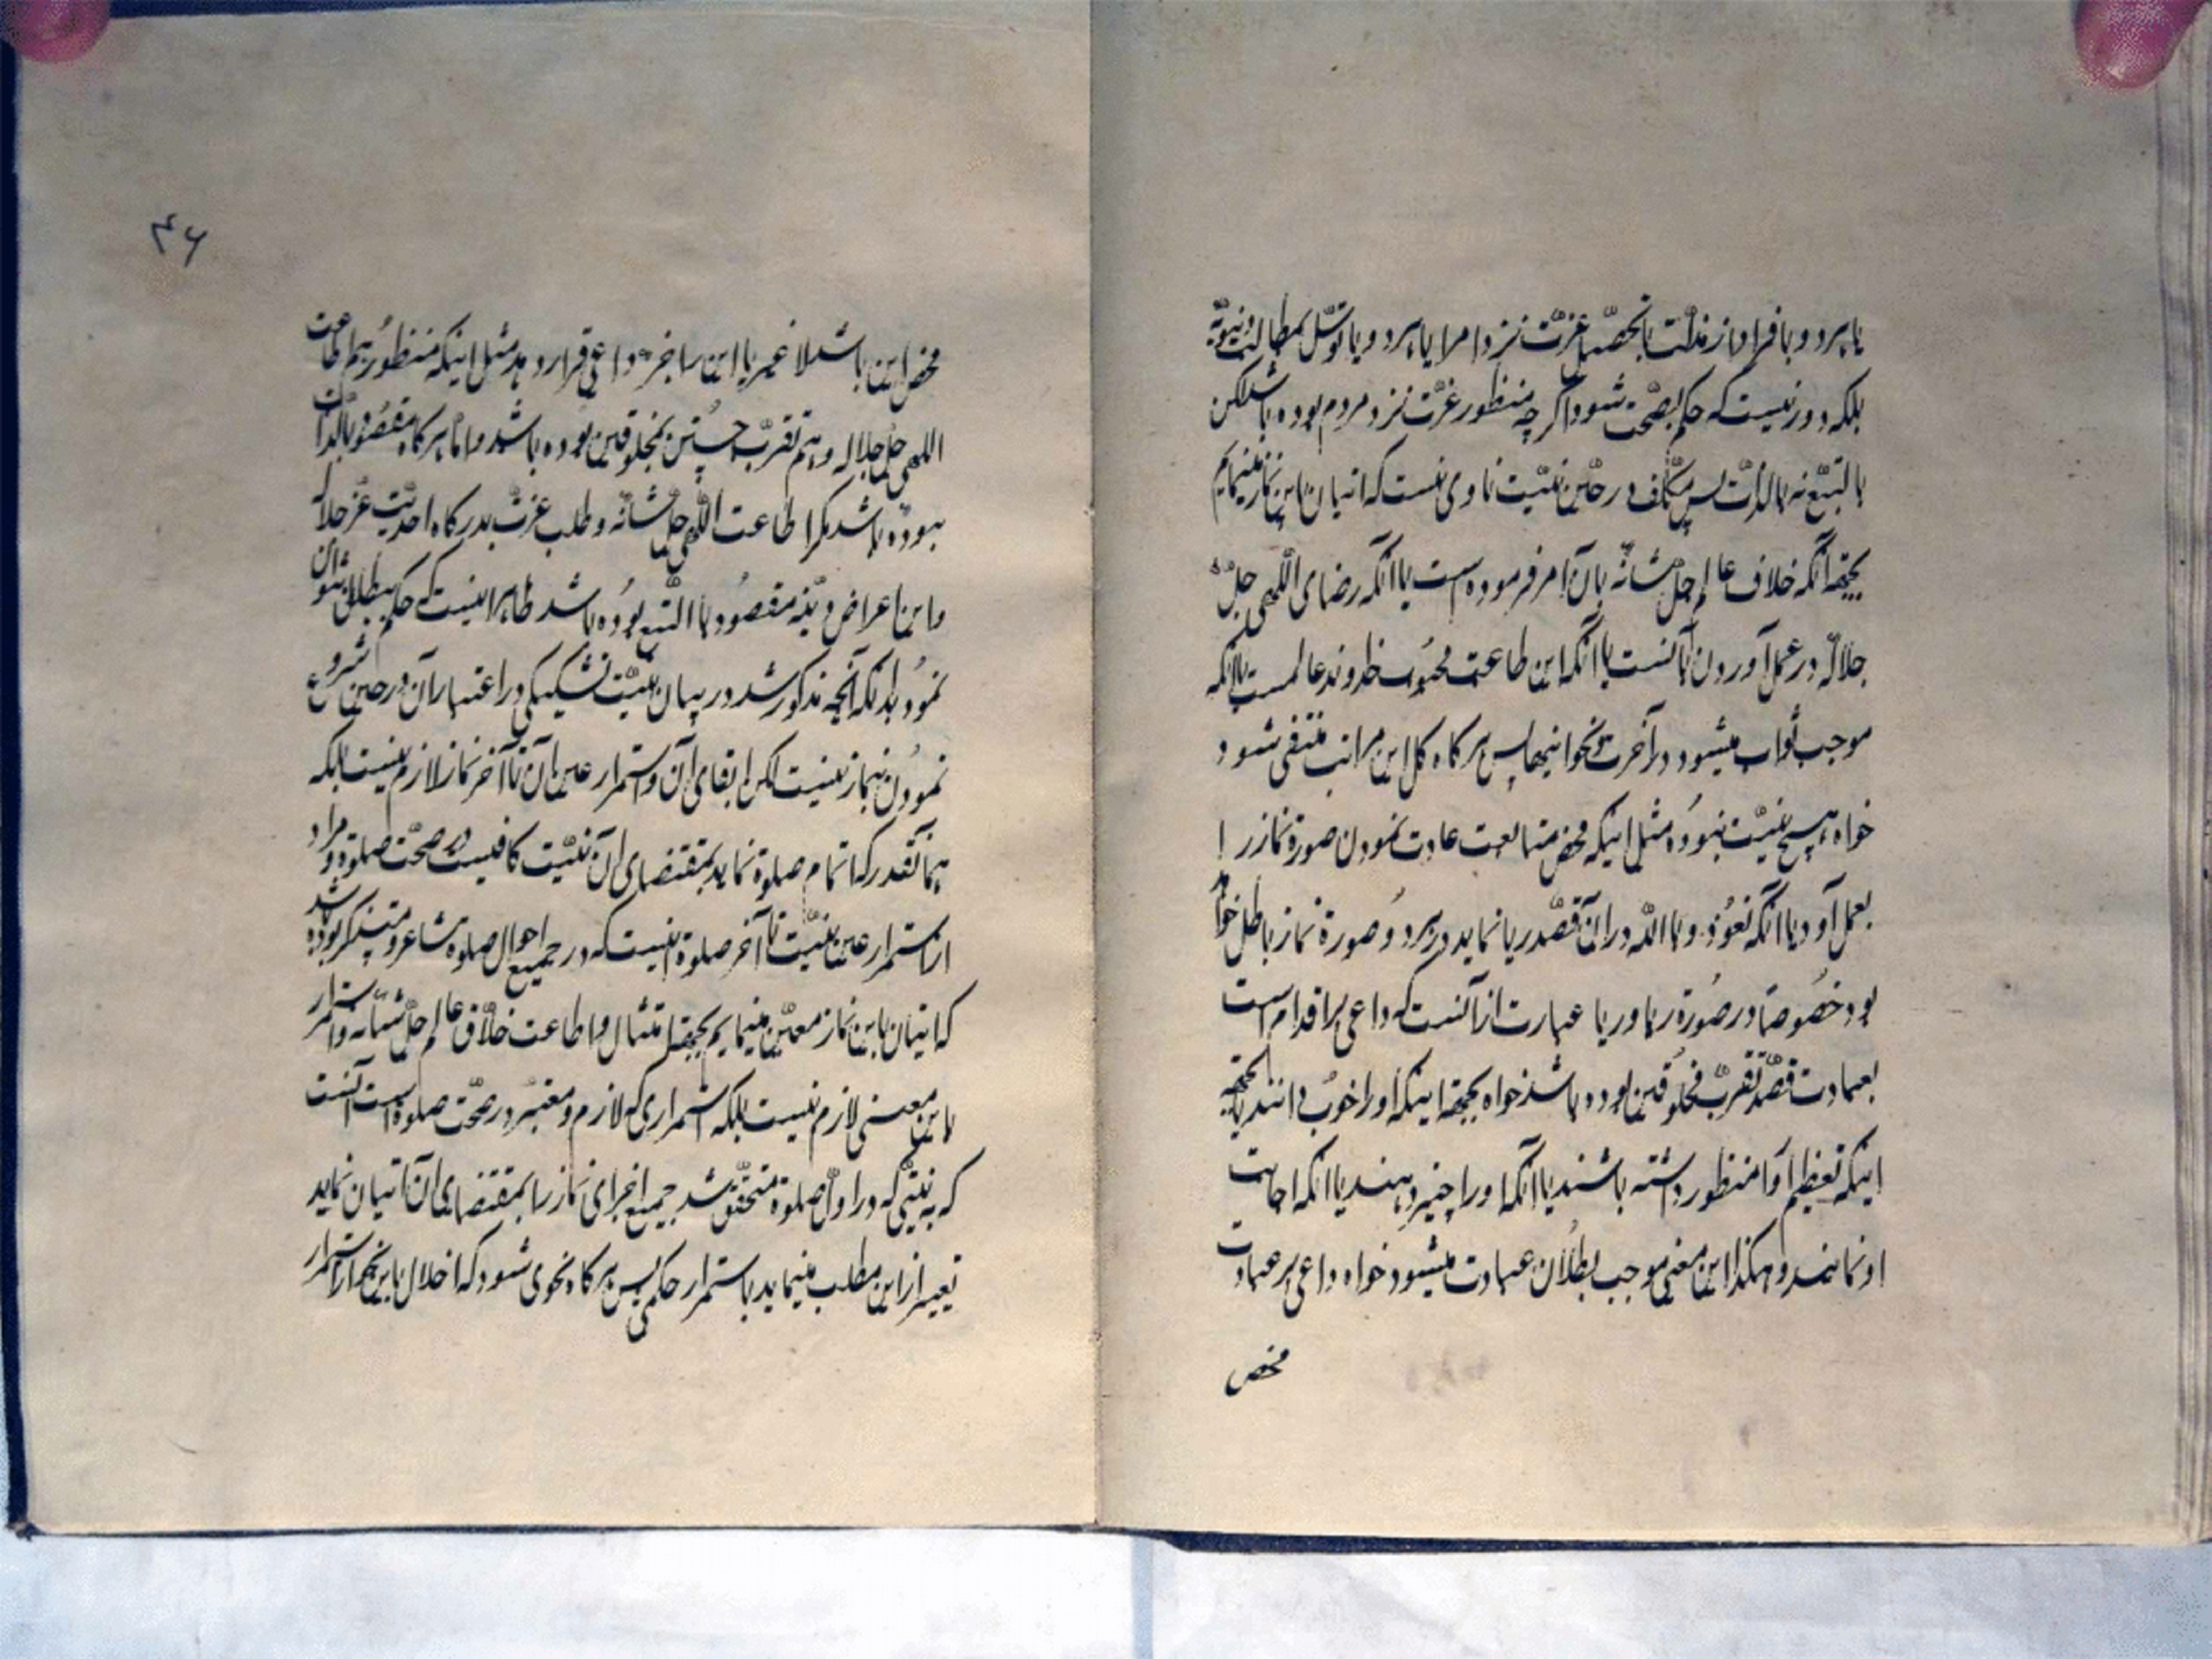 یا هر دو و با فرار از مذلت یا تحصیل عزت نزد امرا یا هر دو و یا توسل بمطالب دنیویّه
بلکه دور نیست که حکم بصحّت شود اگر چه منظور عزّت نزد مردم بوده باشد لکن
بالتبع نه بالذّات پس مکلّف در حین نیّت ناوی نیست که اتیان باین نماز مینمایم
بجهة آنکه خلاق عالم جلّ شانه بآن امر فرموده است یا آنکه رضای اللهی جلّ
جلاله در عمل آوردن آنست یا آنکه این طاعت محبوب خداوند عالمست یا آنکه
موجب ثواب میشود در آخرت و نحو اینها پس هر گاه کل این مراتب منتفی شود
خواه هیچ نیّت نبوده مثل اینکه محض متابعت عادت نمودن صورة نماز را
بعمل آورد یا آنکه نعوذ باالله در آن قصد ریا نماید در هر دو صورة نماز باطل خواهد
بود خصوصاً در صورة ریا و ریا عبارت از آنست که داعی بر اقدام است
بعبادت قصد تقرّب مخلوقین بوده باشد خواه بجهة اینکه او را خوب دانند یا بجهة
اینکه تعظیم او را منظور داشته باشند یا آنکه او را چیز دهند یا آنکه اجابت
او نمایند و هکذا این معنی موجب بطلان عبادت میشود خواه داعی بر عبادت
محض
۴۶
محض این باشد لا غیر یا این را جزء داعی قرار دهد مثل اینکه منظور هم اطاعت
اللهی جلّ جلاله و هم تقرّب جستن بمخلوقین بوده باشد و امّا هر گاه مقصود بالذّات
نبوده باشد مگر اطاعت اللهی جلّ شانه و طلب عزّت بدرگاه احدیّت عزّ جلاله
و این اعراض دنیّه مقصود باالتبع بوده باشد ظاهر اینست که حکم ببطلان نتوان
نمود بدانکه آنچه مذکور شد در بیان نیّت تشکیکی در اعتبار آن در حین شروع
نمودن بنماز نیست لکن ابقای آن و استمرار عین آن تا آخر نماز لازم نیست بلکه
همانقدر که اتمام صلوة نماید بمقتضای آن نیّت کافیست در صحّت صلوة و مراد
از استمرار عین نیّت تا آخر صلوة اینست که در جمیع احوال صلوة مشاعر و متذکر بوده باشد
که اتیان باین نماز معیّن مینمایم بجهة امتثال و اطاعت خلاق عالم جلّ شانه و استمرار
باین معنی لازم نیست بلکه استمراری که لازم و معتبر در صحّت صلوة است آنست
که به نیّتی که در اوّل صلوة متحقّق شد جمیع اجزای نماز را بمقتضای آن اتیان نماید
تعبیر از این مطلب مینماید باستمرار حکمی پس هر گاه نحوی شود که اخلال باین نحو از استمرار